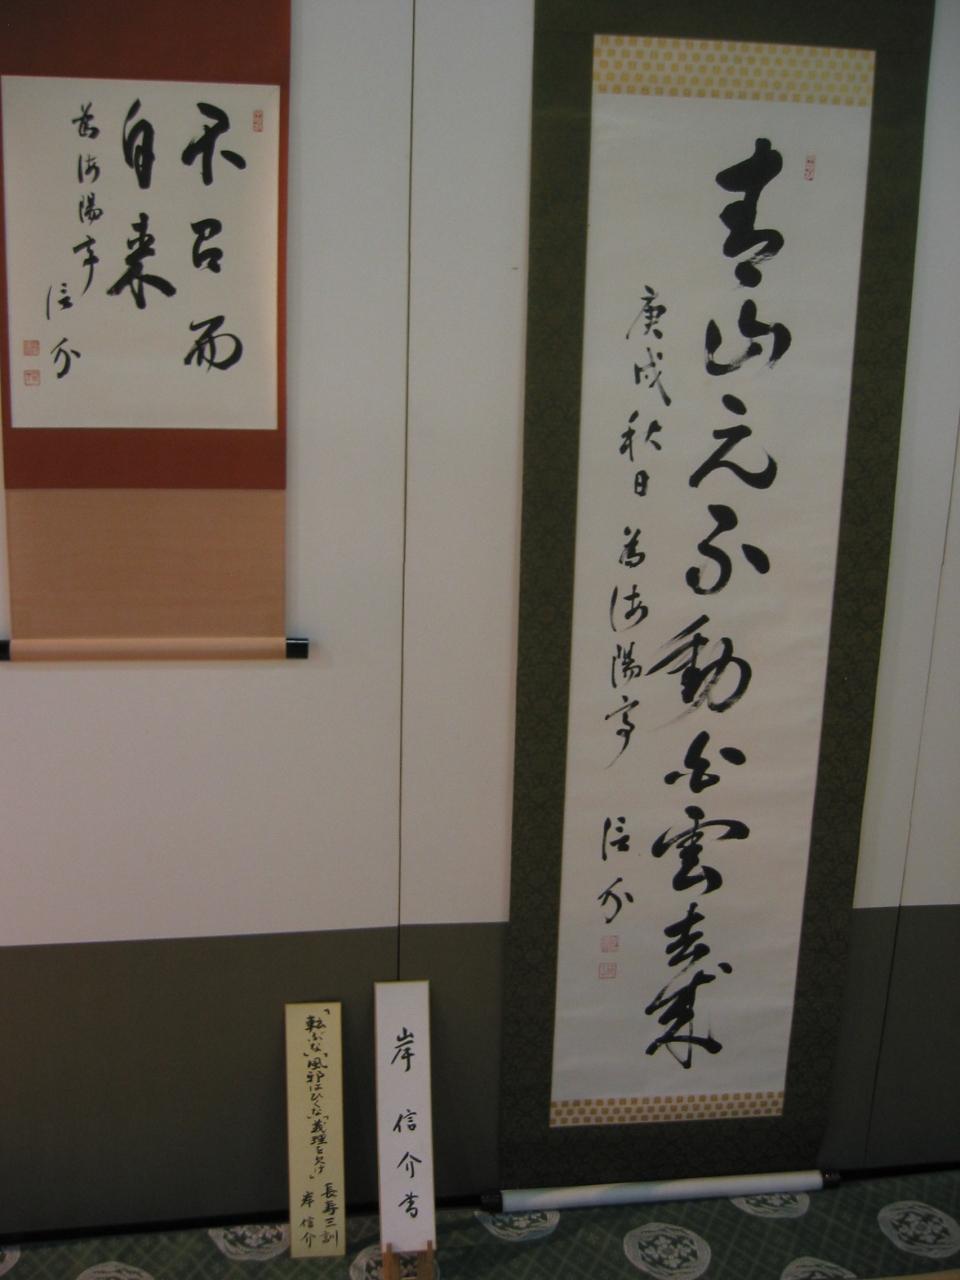 青山元不動白雲去来
庚戌秋日為海陽亭
信介
不召而
自来
為海陽亭
信介
岸信介書
「転ぶな」「風邪はひくな」「義理を欠け」
長寿三訓
岸信介